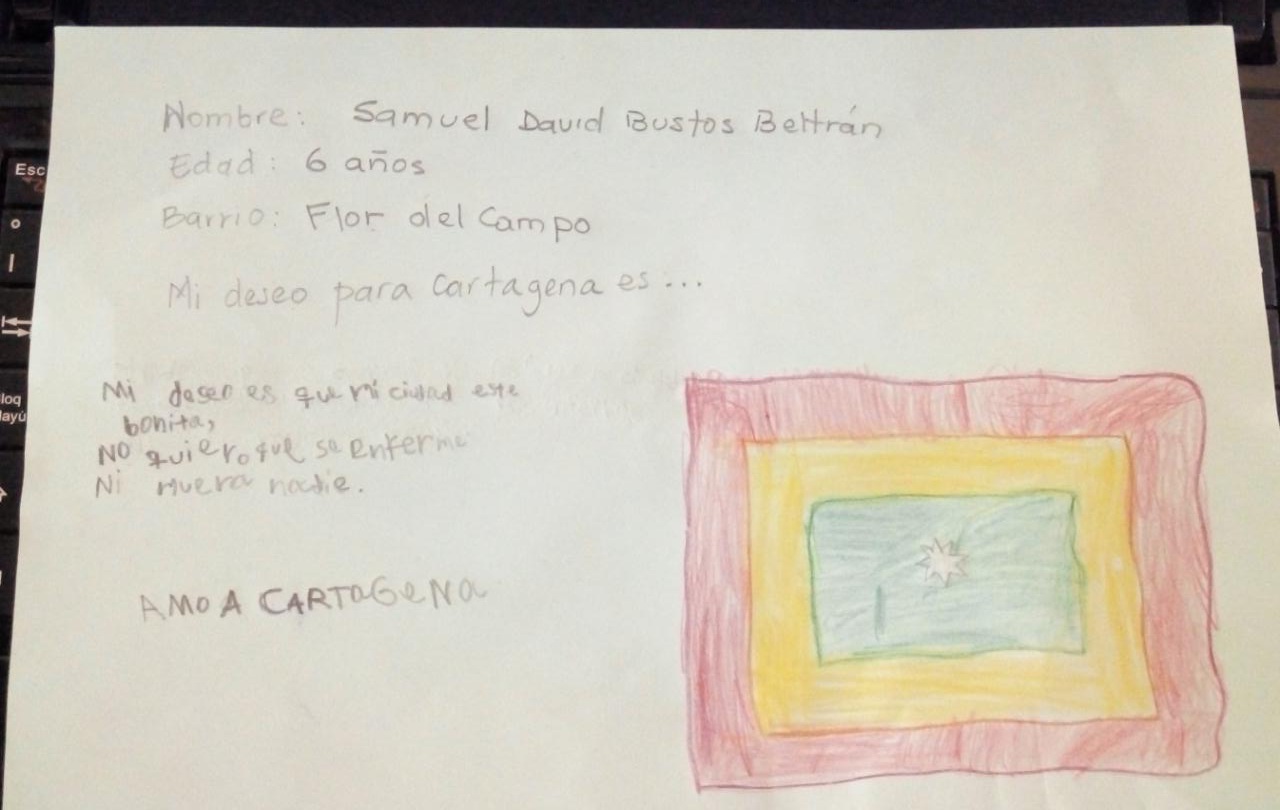 Nombre: Samuel David Bustos Beltrán
Edad: 6 años
Barrio: Flor del Campo
Mi deseo para Cartagena es...
Mi deseo es que mi ciudad este
bonita,
NO quiero que se enferme
Ni muera nadie.
AMO A CARTAGENA
Esc